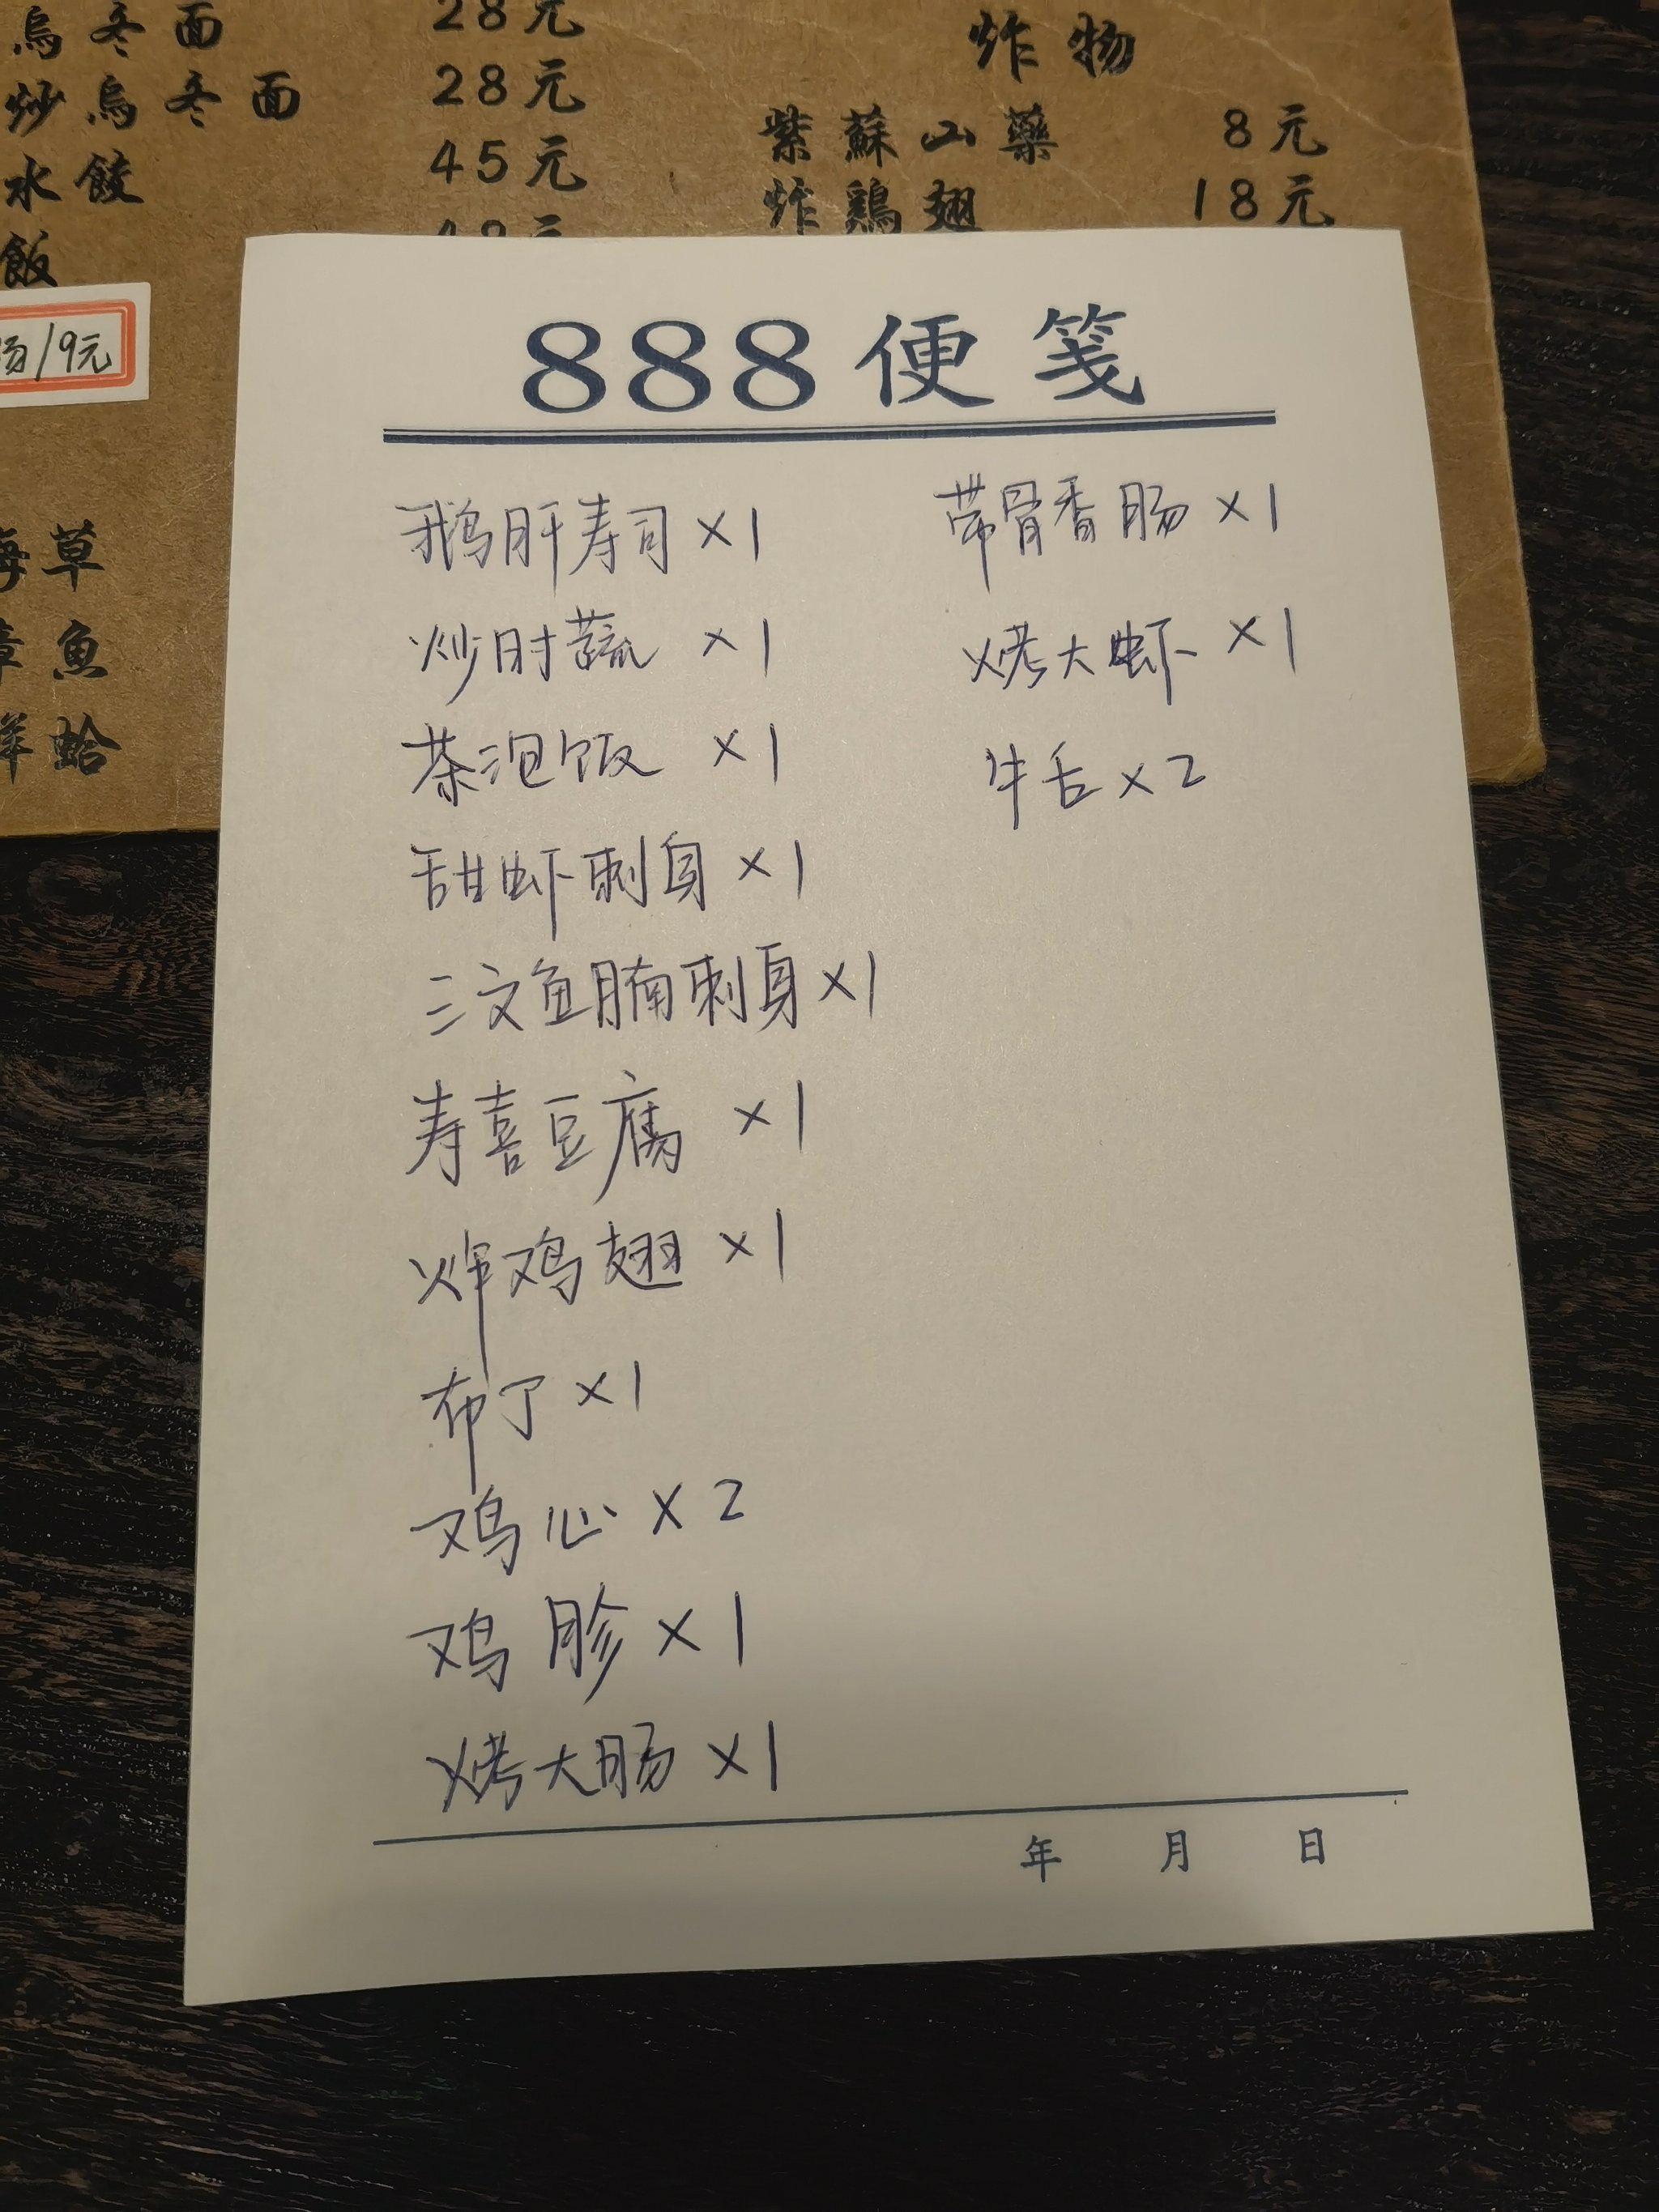 烏冬面 28元
炒烏冬面 28元
水餃 45元
飯
/9元
海草
章魚
蛤
炸物
紫蘇山藥 8元
炸鷄翅 18元
888便笺
鹅肝寿司×1
炒时蔬 ×1
茶泡饭 ×1
甜虾刺身 ×1
三文鱼腩刺身×1
寿喜豆腐 ×1
炸鸡翅 ×1
布丁 ×1
鸡心 ×2
鸡胗 ×1
烤大肠 ×1
带骨香肠 ×1
烤大虾 ×1
牛舌×2
年 月 日